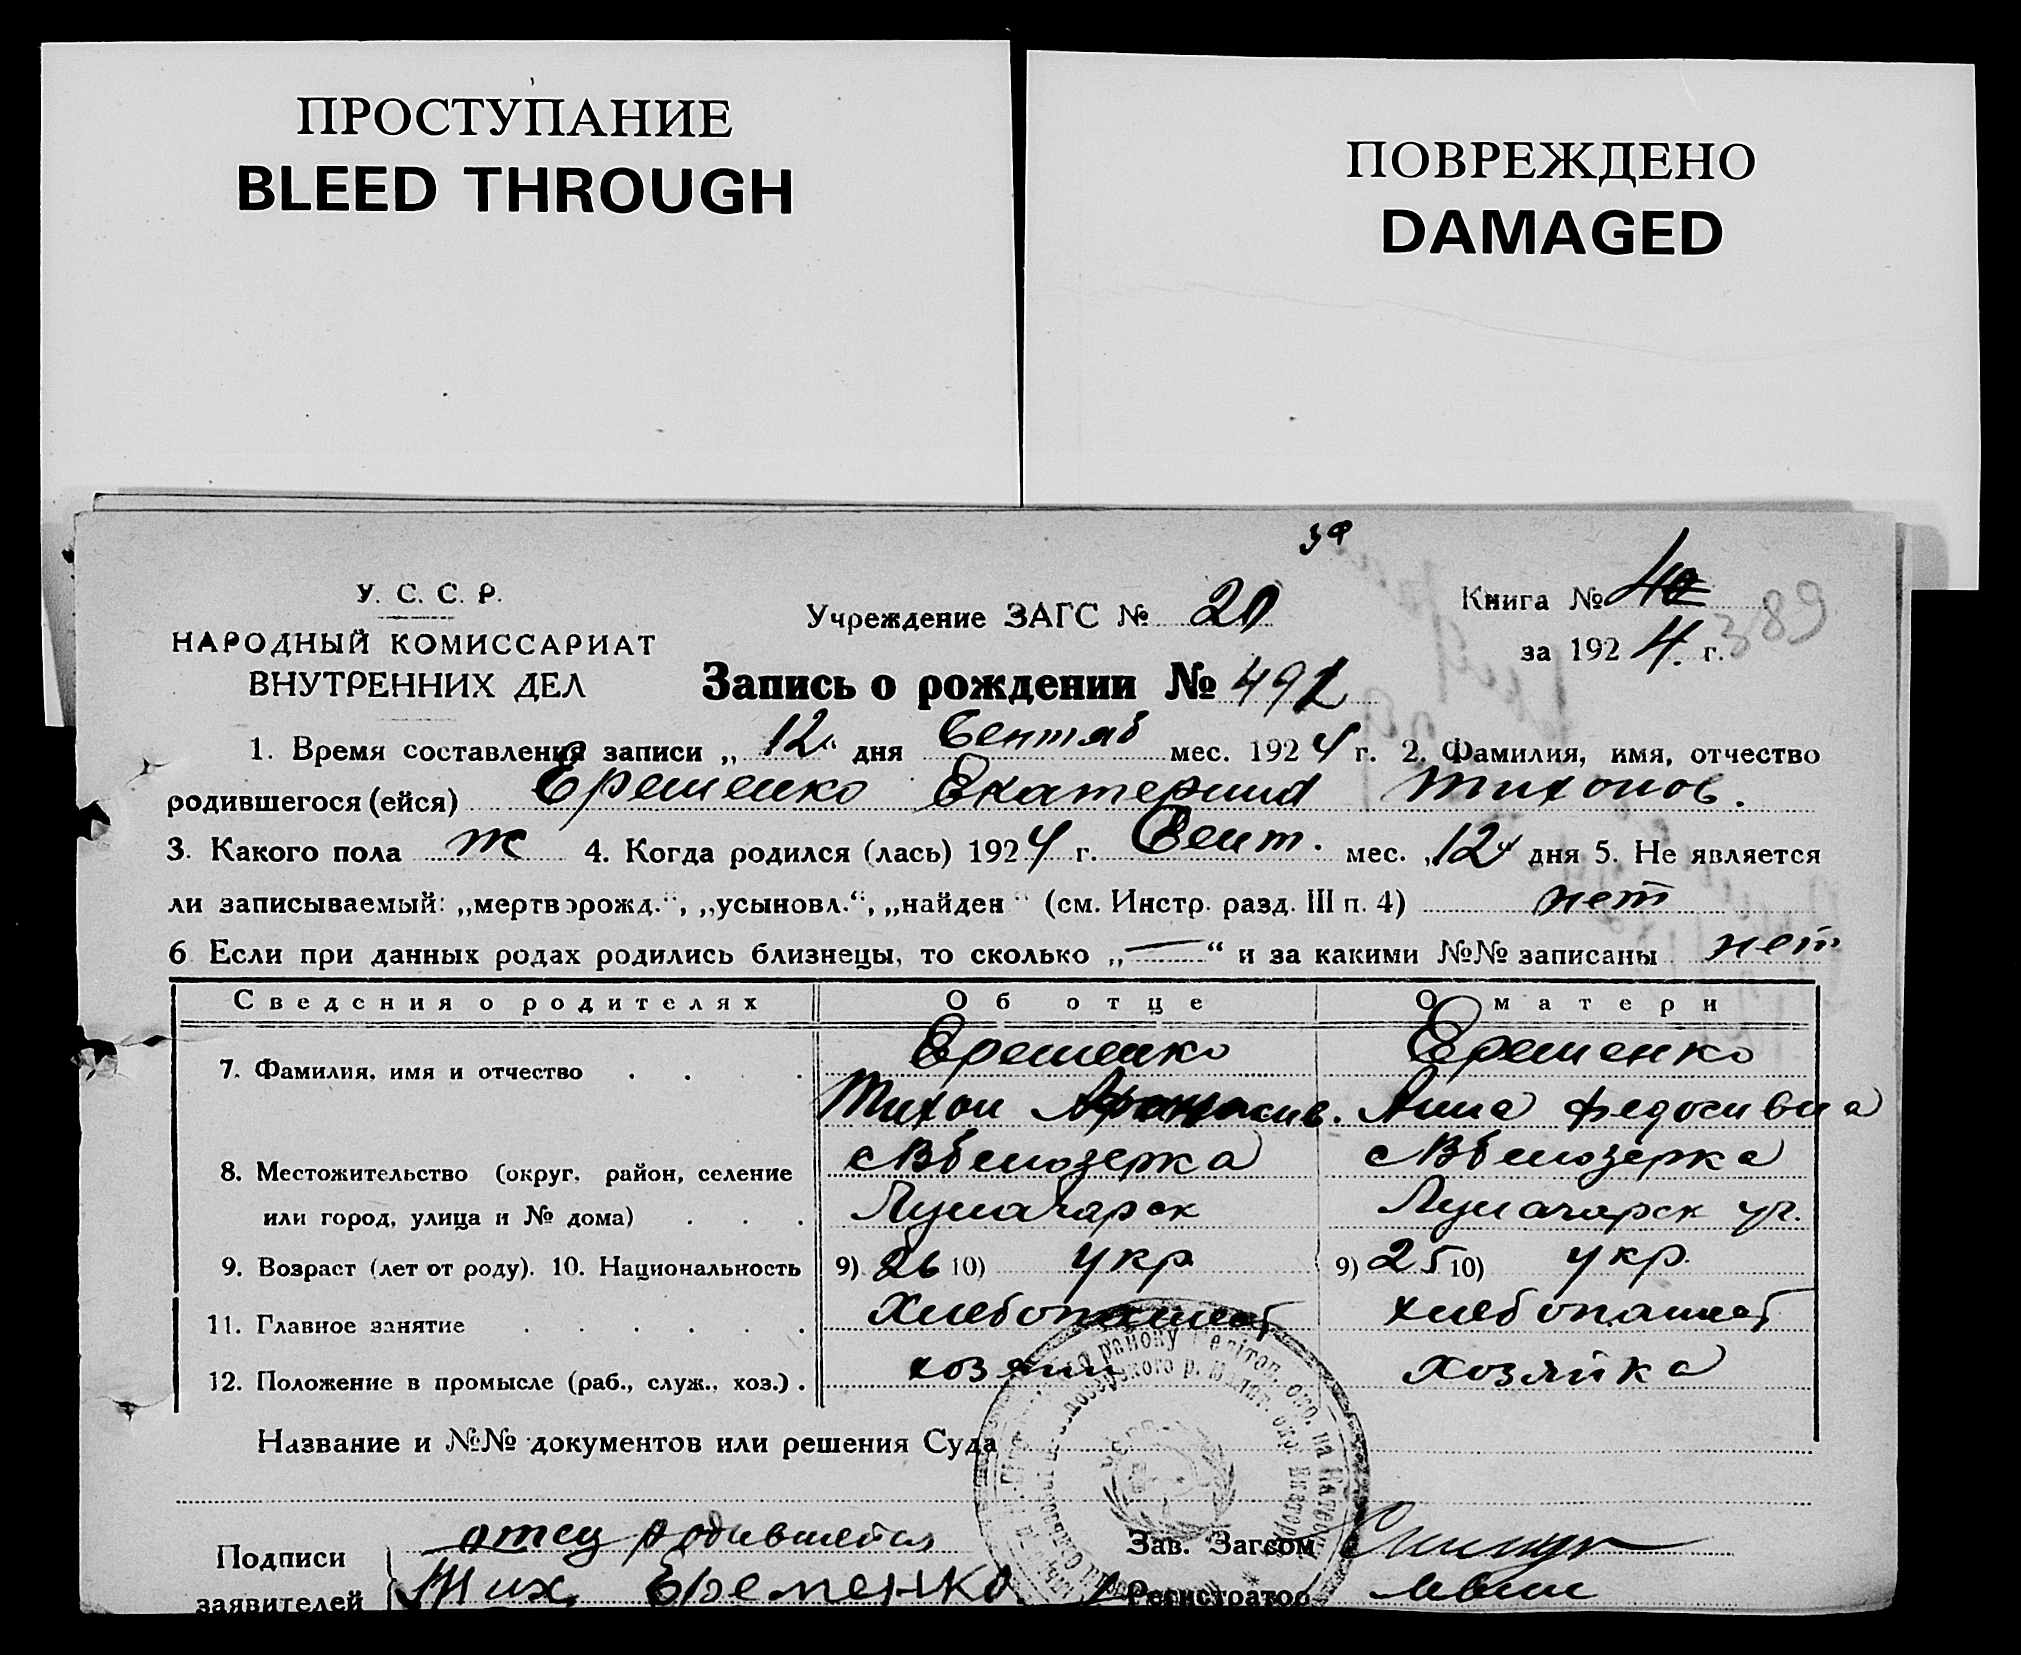 ПРОСТУПАНИЕ
BLEED THROUGH
ПОВРЕЖДЕНО
DAMAGED
У. С. С. Р.
НАРОДНЫЙ КОМИССАРИАТ
ВНУТРЕННИХ ДЕЛ
Учреждение ЗАГС № 20
Книга №
за 1924 г.
389
Запись о рождении № 492
1. Время составления записи „12“ дня Сентяб мес. 1924 г. 2. Фамилия, имя, отчество
родившегося (ейся) Еременко Екатерина Тихонов.
3. Какого пола ж 4. Когда родился (лась) 1924 г. Сент. мес. „12“ дня 5. Не является
ли записываемый: „мертворожд.“, „усыновл.“, „найден“ (см. Инстр. разд. III п. 4) нет
6 Если при данных родах родились близнецы, то сколько „—“ и за какими №№ записаны нет
Сведения о родителях Об отце О матери
7. Фамилия, имя и отчество Еременко Еременко
Тихон Афанасив. Анна Федосивна
8. Местожительство (округ, район, селение с Вбелозерка с Вбелозерка
или город, улица и № дома)
9. Возраст (лет от роду). 10. Национальность 9) 26 10) укр 9) 25 10) укр.
11. Главное занятие Хлебопашест хлебопашест
12. Положение в промысле (раб., служ., хоз.) хозяин хозяйка
Название и №№ документов или решения Суда
Подписи отец родившейся Зав. Загсом
заявителей Тих. Еременко Регистратор